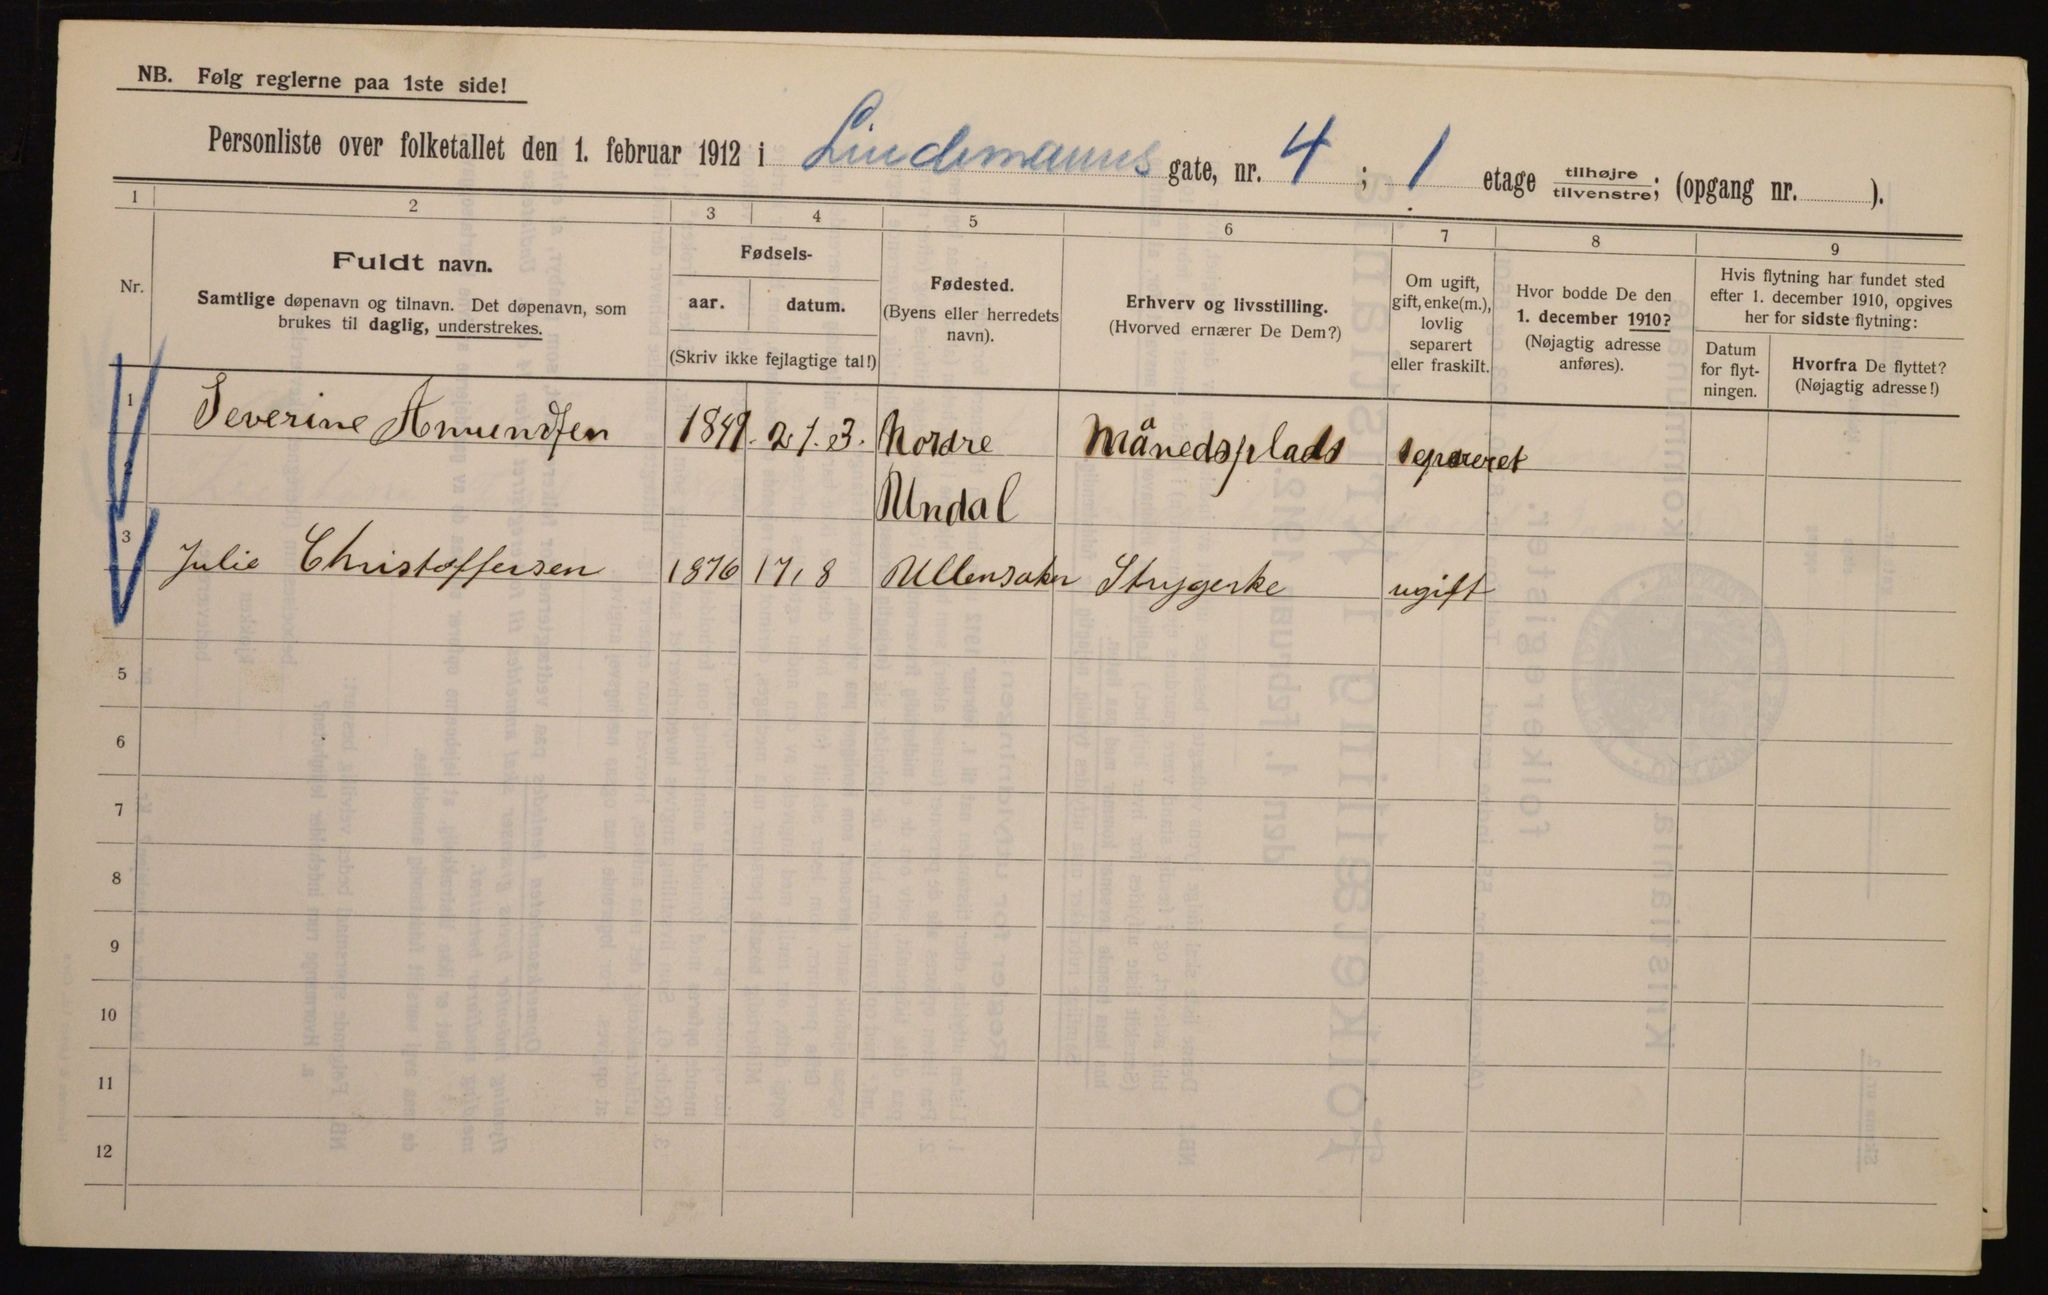 NB. Følg reglerne paa 1ste side!
Personliste over folketallet den 1. februar 1912 i Lindemanns gate, nr. 4 ; 1 etage tilhøjre tilvenstre; (opgang nr. ).
1 2 3 4 5 6 7 8 9
Nr.
Fuldt navn.
Samtlige døpenavn og tilnavn. Det døpenavn, som
brukes til daglig, understrekes.
Fødsels-
aar. datum.
(Skriv ikke fejlagtige tal!)
Fødested.
(Byens eller herredets
navn).
Erhverv og livsstilling.
(Hvorved ernærer De Dem?)
Om ugift,
gift, enke(m.),
lovlig
separert
eller fraskilt.
Hvor bodde De den
1. december 1910?
(Nøjagtig adresse
anføres).
Hvis flytning har fundet sted
efter 1. december 1910, opgives
her for sidste flytning:
Datum
for flyt-
ningen.
Hvorfra De flyttet?
(Nøjagtig adresse!)
1 Severine Amundsen 1849. 21. 3. Nordre Månedsplads separeret
2 Undal
3 Julie Christoffersen 1876 17/8 Ullensaker Strygerske ugift
5
6
7
8
9
10
11
12